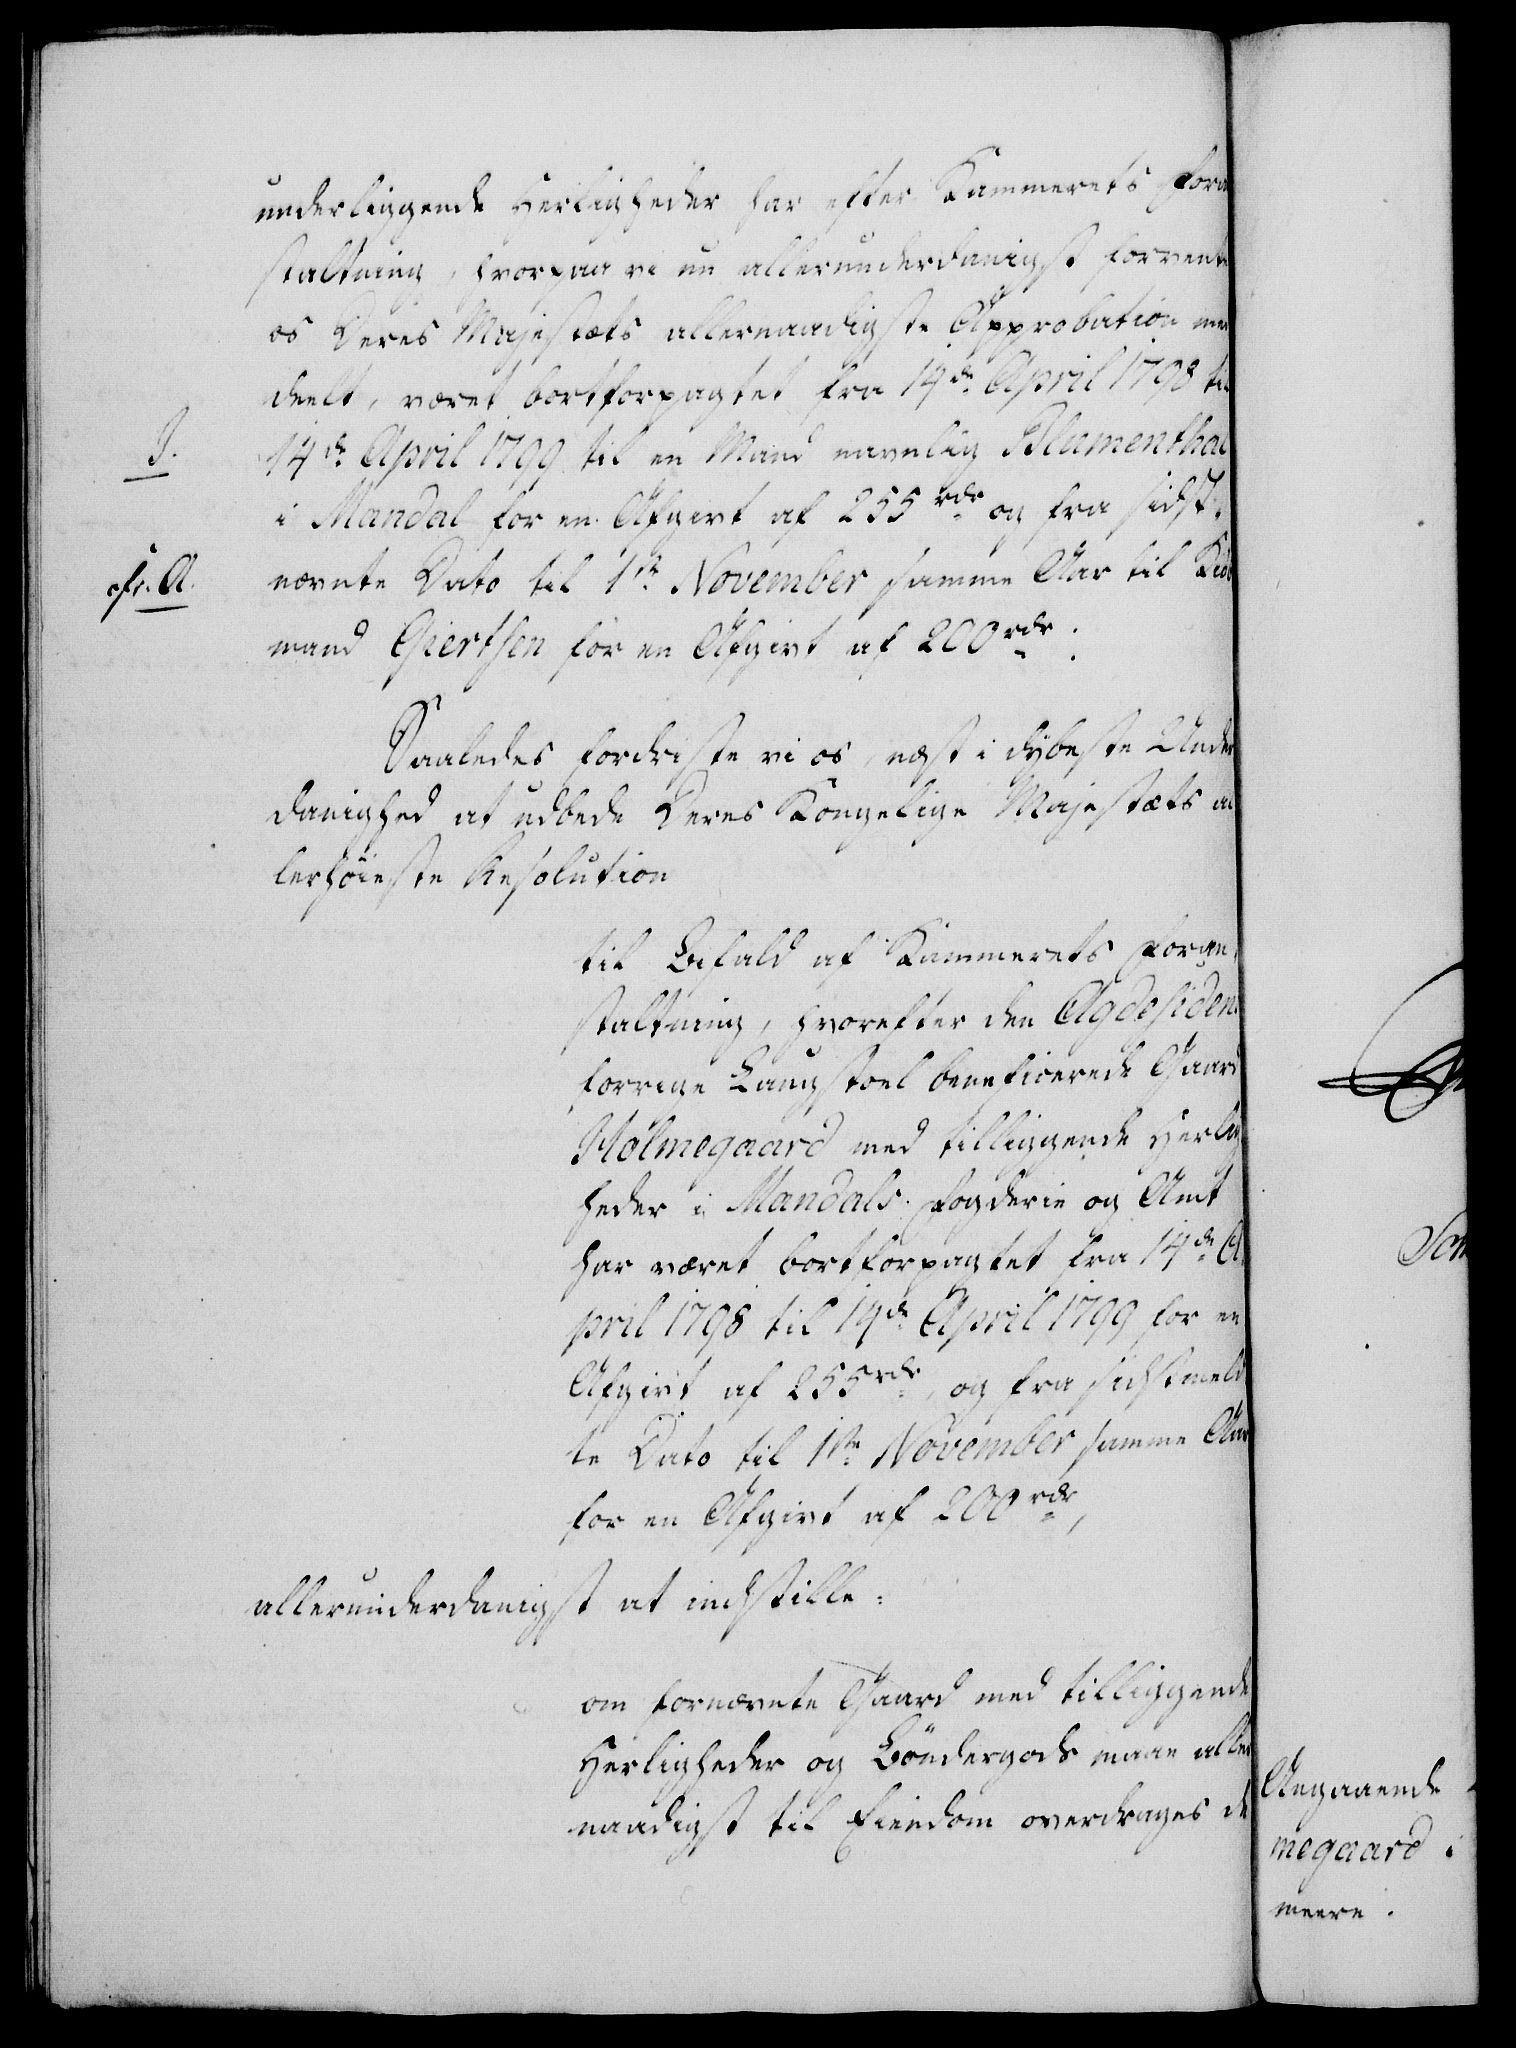 underliggende Herligheder har efter Kammerets Foran
staltning, hvorpaa vi nu allerunderdanigst forvente
os Deres Majestæts allernaadigste Approbation med
deelt, været bortforpagtet fra 14de April 1798 til
I.
14de April 1799 til en Mand navnlig Blumenthal
i Mandal for en Afgivt af 255 rdr og fra sidst,
cfr. A.
nævnte Dato til 1ste November samme Aar til Kiøb
mand Giertsen for en Afgivt af 200 rdr.
Saaledes fordriste vi os, næst i dybeste Under
danighed at udbede Deres Kongelige Majestæts al
lerhöieste Resolution
til Bifald af Kammerets Foran,
staltning, hvorefter den Agdesidens
forrige Laugstoel beneficerede Gaard
Holmegaard med tilliggende Herlig
heder i Mandals Fogderie og Amt
har været bortforpagtet fra 14de A
pril 1798 til 14de April 1799 for en
Afgivt af 255 rdr, og fra sidstmeld
te Dato til 1ste November samme Aar
for en Afgivt af 200 rdr,
allerunderdanigst at indstille:
om fornævnte Gaard med tilliggende
Herligheder og Böndergods maae aller
naadigst til Eiendom overdrages de
Som
Angaaende
megaard i
meere.